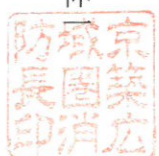 京築広
域圏消
防長印